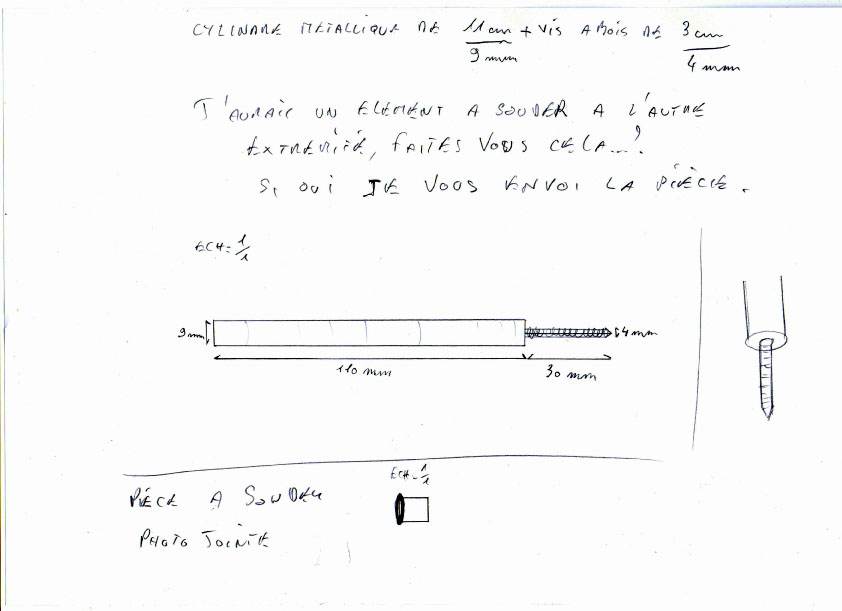 CYLINDRE METALLIQUE DE 11cm/9mm + VIS A BOIS DE 3cm/4mm
J'AURAIS UN ELEMENT A SOUDER A L'AUTRE
EXTREMITÉ, FAITES VOUS CELA...?
SI OUI JE VOUS ENVOI LA PIÈCE.
ECH = 1/1
9mm
4mm
110 mm
30 mm
ECH = 1/1
PIÈCE A SOUDER
PHOTO JOINTE